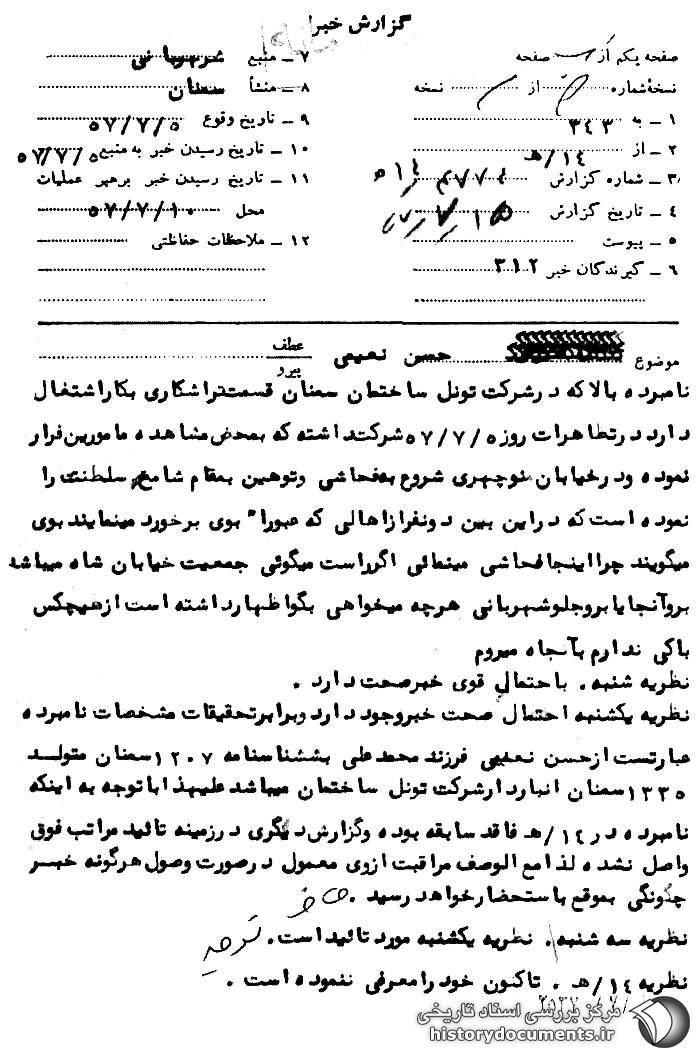 گزارش خبر
صفحه یکم از صفحه
نسخه شماره از نسخه
۱ ـ به ۳۴۳
۲ ـ از ۱۴/هـ
۳ـ شماره گزارش
۴ ـ تاریخ گزارش
۵ ـ پیوست
۶ ـ گیرندگان خبر ۳۱۲
۷ ـ منبع شهربانی
۸ ـ منشأ سمنان
۹ ـ تاریخ وقوع ۵۷/۷/۵
۱۰ ـ تاریخ رسیدن خبر به منبع ۵۷/۷/۵
۱۱ ـ تاریخ رسیدن خبر برهبر عملیات
محل ۵۷/۷/۱۰
۱۲ ـ ملاحظات حفاظتی
موضوع حسن نعیمی عطف
پیرو
نامبرده بالا که در شرکت تونل ساختمان سمنان قسمت تراشکاری بکار اشتغال
دارد در تظاهرات روز ۵۷/۷/۵ شرکت داشته که بمحض مشاهده مامورین فرار
نموده و در خیابان منوچهری شروع به فحاشی و توهین بمقام شامخ سلطنت را
نموده است که در این بین دو نفر از اهالی که عبورا" بوی برخورد مینمایند بوی
میگویند چرا اینجا فحاشی مینمائی اگر راست میگوئی جمعیت خیابان شاه میباشد
برو آنجا یا برو جلو شهربانی هرچه میخواهی بگو اظهار داشته است از هیچکس
باکی ندارم بآنجاه میروم
نظریه شنبه . با احتمال قوی خبر صحت دارد .
نظریه یکشنبه احتمال صحت خبر وجود دارد و برابر تحقیقات مشخصات نامبرده
عبارتست از حسن نعیمی فرزند محمد علی بششناسنامه ۱۲۰۷ سمنان متولد
۱۳۳۵ سمنان انباردار شرکت تونل ساختمان میباشد علیهذا با توجه به اینکه
نامبرده در ۱۴/هـ فاقد سابقه بوده و گزارش دیگری در زمینه تائید مراتب فوق
واصل نشده لذا مع الوصف مراقبت از وی معمول در صورت وصول هرگونه خبر
چگونگی بموقع باستحضار خواهد رسید .
نظریه سه شنبه . نظریه یکشنبه مورد تائید است .
نظریه ۱۴/هـ . تاکنون خود را معرفی ننموده است .
مرکز بررسی اسناد تاریخی
historydocuments.ir